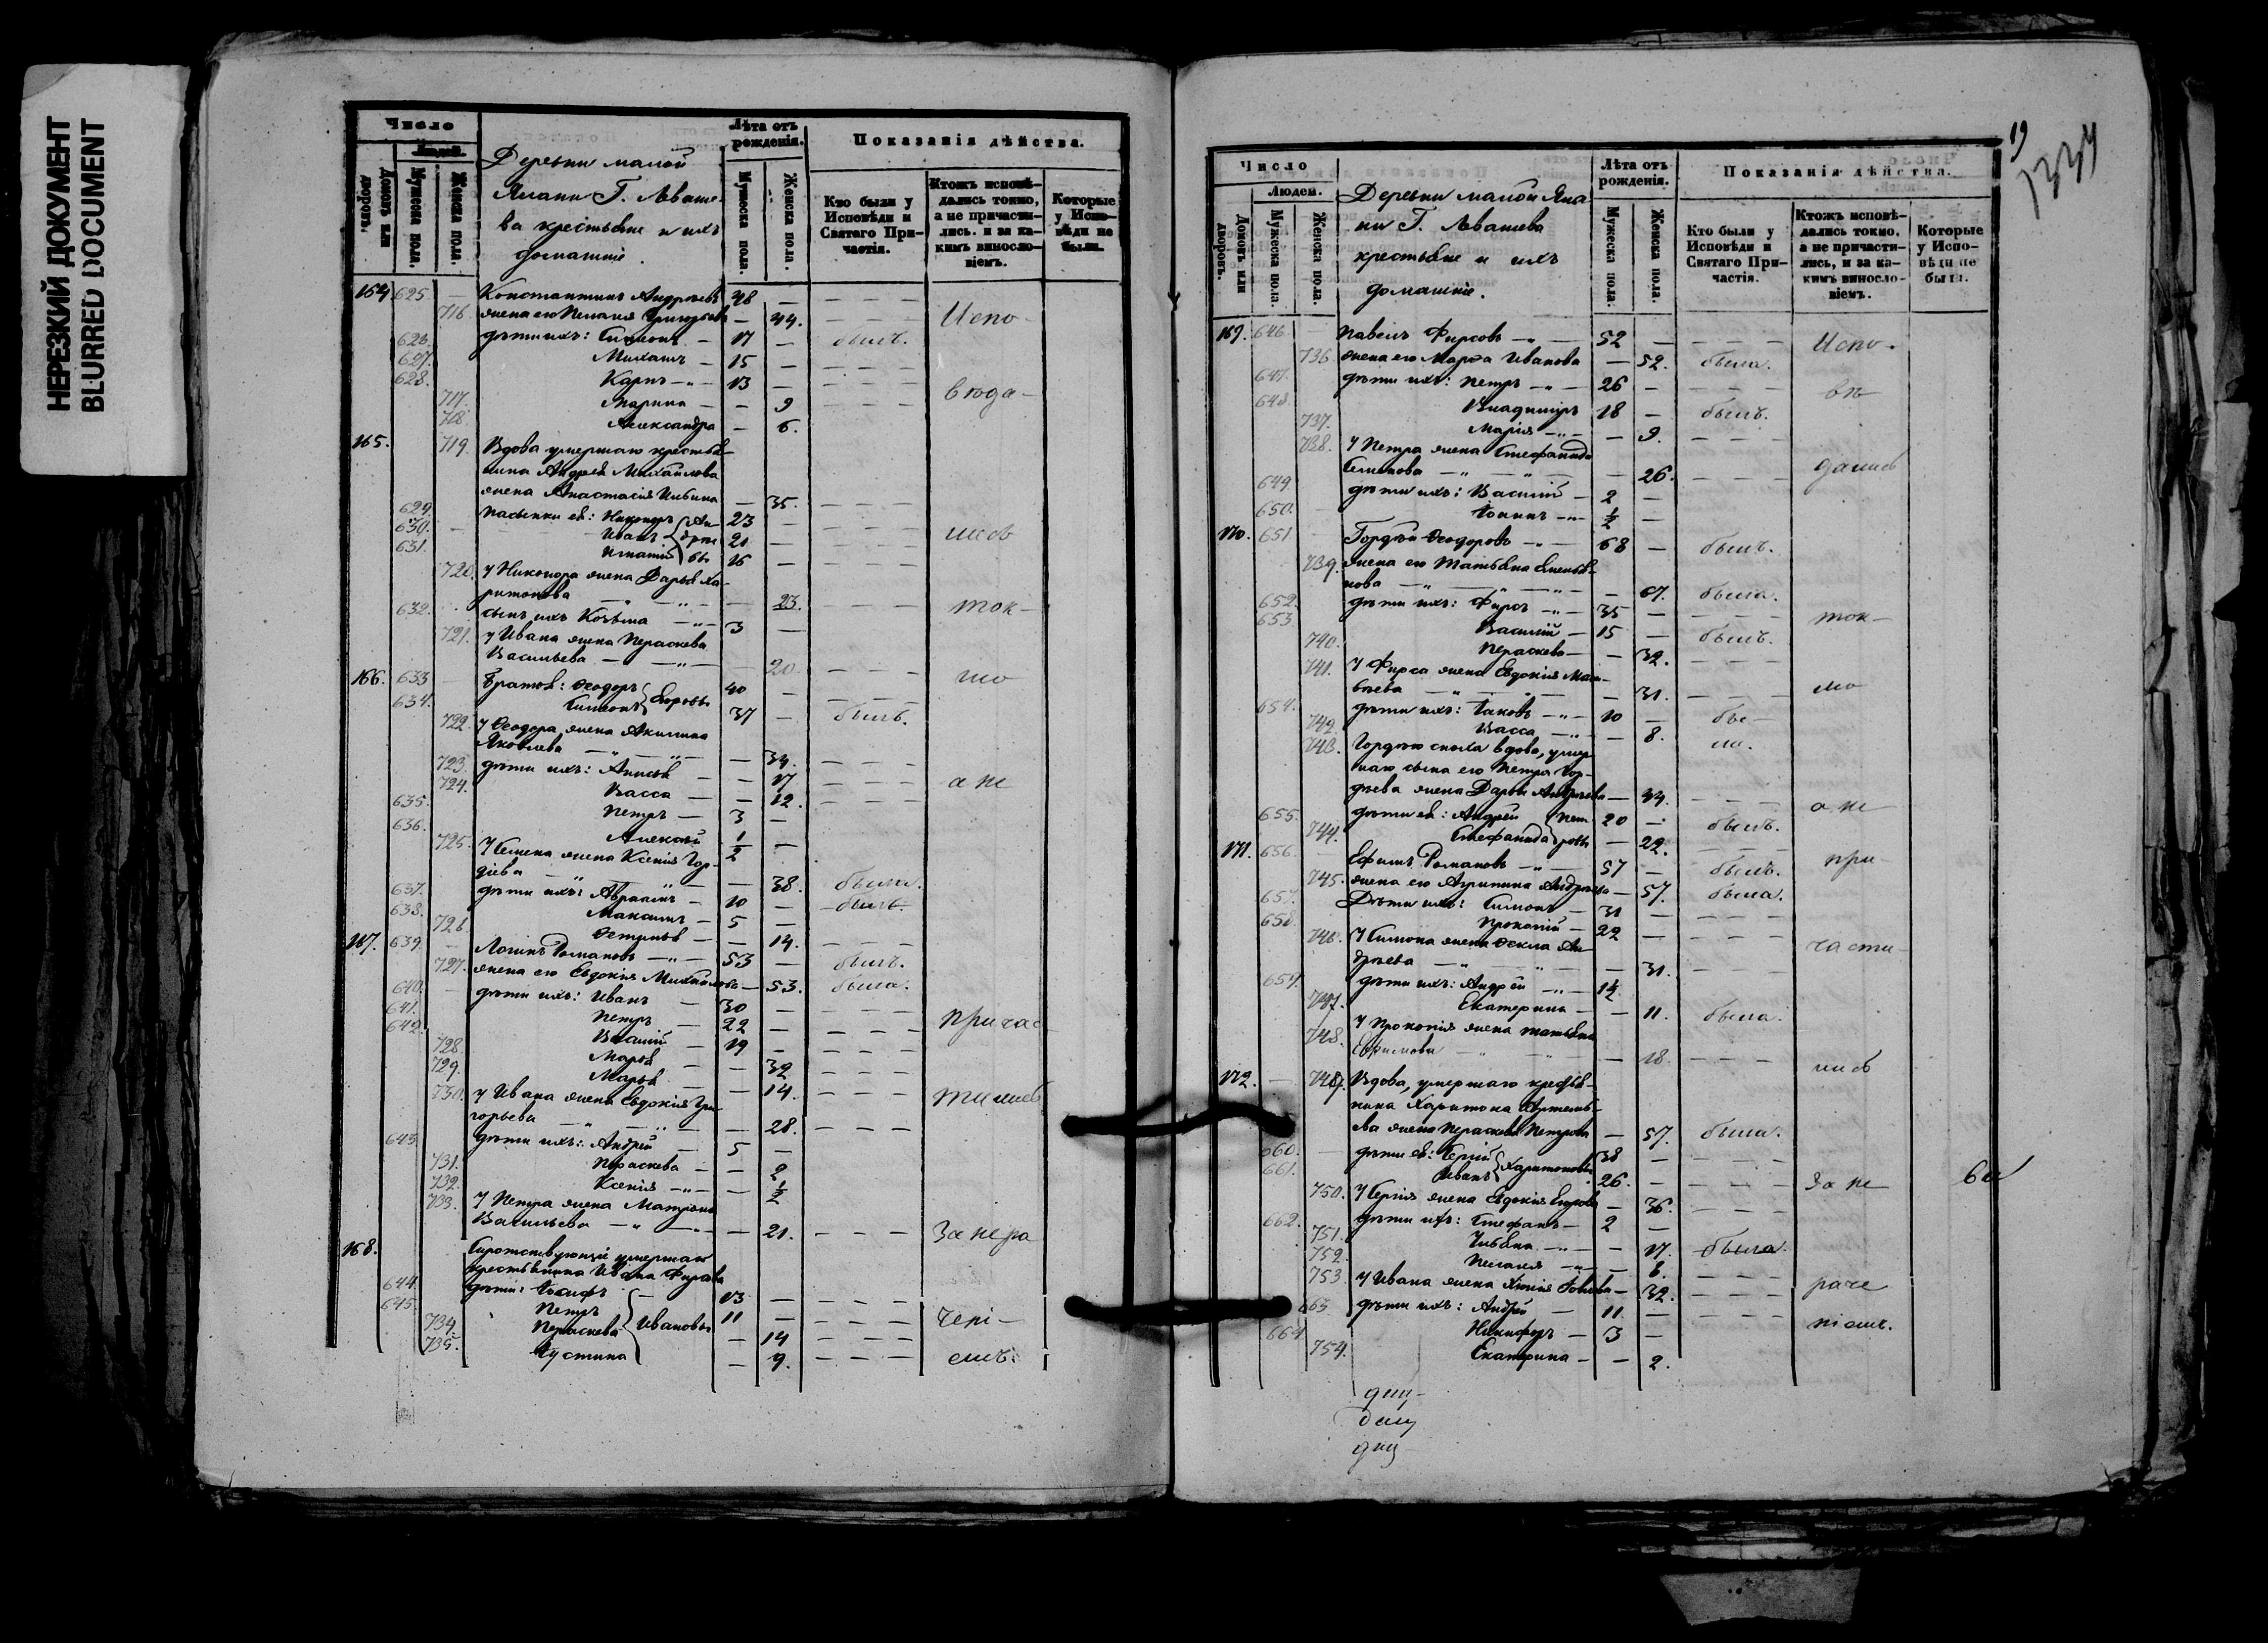 НЕРЕЗКИЙ ДОКУМЕНТ
BLURRED DOCUMENT
Число
Людей.
Домовъ или дворовъ.
Мужеска пола.
Женска пола.
Деревни малой
Ялани Г. Леваше-
ва крестьяне и ихъ
домашніе.
Лѣта отъ рожденія.
Мужеска пола.
Женска пола.
Показанія дѣйства.
Кто были у Исповѣди и Святаго Причастія.
Ктожъ исповѣдались токмо, а не причастились, и за какимъ винословіемъ.
Которые у Исповѣди не были.
164 625. Константинъ Андреевъ 48 —
716. жена его Пелагія Григорьева — 44. Испо-
626. дѣти ихъ: Симеонъ — 17 — былъ.
627. Михаилъ — 15 —
628. Карпъ — 13 — вѣда-
717. Марина — — 9
718. Александра — 6.
165. 719. Вдова умершаго крестья-
нина Андрея Михайлова
жена Анастасія Ильина — 35.
629. пасынки ея: Никаноръ Ан- 23 —
630. Иванъ дрее 21 — лись
631. Игнатій вы 16 —
720. У Никанора жена Дарья Ха-
ритонова — 23.
632. сынъ ихъ Козьма 3 — ток-
721. У Ивана жена Параскева
Васильева — 20.
166. 633 Братья: Ѳеодоръ Егоровы 40 — мо
634. Симеонъ 37 — былъ.
722. У Ѳеодора жена Акилина
Яковлева — 34.
723. дѣти ихъ: Анисья — 17 а не
724. Васса — — 12.
635. Петръ — 3 —
636. Алексѣй 1/2 —
725. У Семена жена Ксенія Гор-
дѣева — 38. была.
637. дѣти ихъ: Авраамъ — 10 — былъ.
638. Максимъ — 5 —
726. — 14.
167. 639. Логинъ Романовъ 53 — былъ.
727. жена его Евдокія Михайлова — 53. была.
640. дѣти ихъ: Иванъ 30 —
641. Петръ — 22 — причас-
642. Василій — 19 —
728. Марья — — 32
729. Марья — 14.
730. У Ивана жена Евдокія Гри- тились
горьева — 28.
643. дѣти ихъ: Андрей 5 —
731. Параскева — — 2
732. Ксенія — 1/2
733. У Петра жена Матрона
Васильева — 21. За нера-
168. Сиротствующіе умершаго
крестьянина Ивана Фирсова
644. дѣти: Іосифъ 13 —
645. Петръ Ивановы 11 — чені-
734. Параскева — 14
735. Іустина — 9. емъ.
19
1334
Число
Людей.
Домовъ или дворовъ.
Мужеска пола.
Женска пола.
Деревни малой Яла-
ни Г. Левашева
крестьяне и ихъ
домашніе.
Лѣта отъ рожденія.
Мужеска пола.
Женска пола.
Показанія дѣйства.
Кто были у Исповѣди и Святаго Причастія.
Ктожъ исповѣдались токмо, а не причастились, и за какимъ винословіемъ.
Которые у Исповѣди не были.
169. 646. Павелъ Фирсовъ 52 — Испо-
736 жена его Марѳа Иванова — 52. была.
647. дѣти ихъ: Петръ 26 — вѣ-
648 Владимиръ 18 — былъ.
737. Марія — 9.
738. У Петра жена Стефанида
Семенова — 26. дались
649 дѣти ихъ: Василій — 2 —
650. Іоаннъ 1/2 —
170. 651 Гордѣй Ѳеодоровъ 68 — былъ.
739. жена его Татьяна Емелья-
нова — 67. была.
652. дѣти ихъ: Фирсъ 35 — ток-
653 Василій — 15 — былъ.
740. Параскева — — 32.
741. У Фирса жена Евдокія Мат-
вѣева — 31. мо
654. дѣти ихъ: Іаковъ 10 — бы-
742. Васса — 8. ла.
743. Гордѣю сноха вдова, умер-
шаго сына его Петра Гор-
дѣева жена Дарья Андреева — 44. а не
655. дѣти ея: Андрей Пет- 20 — былъ.
744. Стефанида ровы — 22.
171. 656. Ефимъ Романовъ 57 — былъ. при-
745. жена его Агрипина Андреева — 57. была.
657. Дѣти ихъ: Симонъ — 31 —
658 Прокопій — 22 —
746. У Симона жена Ѳекла Ан- части-
дреева — 31.
659 дѣти ихъ: Андрей 14
747. Екатерина — — 11. была.
У Прокопія жена Татьяна
748. Ефимова — 18.
172. 749. Вдова, умершаго крестья- лись
нина Харитона Артемь-
ева жена Параскева Петрова — 57. была.
660. дѣти ея: Сергій Харитоновы 38 —
661. Иванъ 26. — За не- 60
750. У Сергія жена Евдокія Егорова — 36.
662. дѣти ихъ: Стефанъ — 2 —
751. Ульяна — 17. была.
752. Пелагея — 8.
753. У Ивана жена — 32. раче
663 дѣти ихъ: Андрей — 11 —
664 Никифоръ — 3 — ніемъ.
754. Екатерина — — 2.